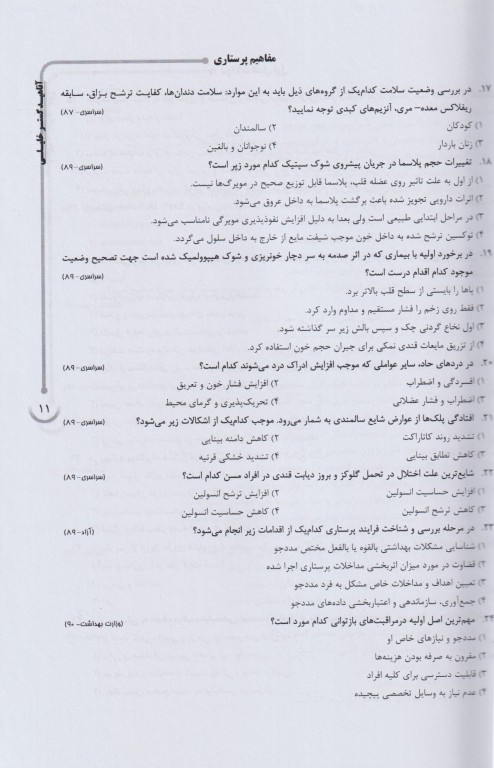 مفاهیم پرستاری
۱۷. در بررسی وضعیت سلامت کدام‌یک از گروه‌های ذیل باید به این موارد: سلامت دندان‌ها، کفایت ترشح بزاق، سابقه
ریفلاکس معده- مری، آنزیم‌های کبدی توجه نمایید؟ (سراسری - ۸۷)
۱) کودکان ۲) سالمندان
۳) زنان باردار ۴) نوجوانان و بالغین
۱۸. تغییرات حجم پلاسما در جریان پیشروی شوک سپتیک کدام مورد زیر است؟ (سراسری - ۸۹)
۱) از اول به علت تاثیر روی عضله قلب، پلاسما قابل توزیع صحیح در مویرگ‌ها نیست.
۲) اثرات دارویی تجویز شده باعث برگشت پلاسما به داخل عروق می‌شود.
۳) در مراحل ابتدایی طبیعی است ولی بعدا به دلیل افزایش نفوذپذیری مویرگی نامتناسب می‌شود.
۴) توکسین ترشح شده به داخل خون موجب شیفت مایع از خارج به داخل سلول می‌گردد.
۱۹. در برخورد اولیه با بیماری که در اثر صدمه به سر دچار خونریزی و شوک هیپوولمیک شده است جهت تصحیح وضعیت
موجود کدام اقدام درست است؟ (سراسری - ۸۹)
۱) پاها را بایستی از سطح قلب بالاتر برد.
۲) فقط روی زخم را فشار مستقیم و مداوم وارد کرد.
۳) اول نخاع گردنی چک و سپس بالش زیر سر گذاشته شود.
۴) از تزریق مایعات قندی نمکی برای جبران حجم خون استفاده کرد.
۲۰. در دردهای حاد، سایر عواملی که موجب افزایش ادراک درد می‌شوند کدام است؟ (سراسری - ۸۹)
۱) افسردگی و اضطراب ۲) افزایش فشار خون و تعریق
۳) اضطراب و فشار عضلانی ۴) تحریک‌پذیری و گرمای محیط
۲۱. افتادگی پلک‌ها از عوارض شایع سالمندی به شمار می‌رود. موجب کدام‌یک از اشکالات زیر می‌شود؟ (سراسری - ۸۹)
۱) تشدید روند کاتاراکت ۲) کاهش دامنه بینایی
۳) کاهش تطابق بینایی ۴) تشدید خشکی قرنیه
۲۲. شایع‌ترین علت اختلال در تحمل گلوکز و بروز دیابت قندی در افراد مسن کدام است؟ (سراسری - ۸۹)
۱) افزایش حساسیت انسولین ۲) افزایش ترشح انسولین
۳) کاهش ترشح انسولین ۴) کاهش حساسیت انسولین
۲۳. در مرحله بررسی و شناخت فرایند پرستاری کدام‌یک از اقدامات زیر انجام می‌شود؟ (آزاد - ۸۹)
۱) شناسایی مشکلات بهداشتی بالقوه یا بالفعل مختص مددجو
۲) قضاوت در مورد میزان اثربخشی مداخلات پرستاری اجرا شده
۳) تعیین اهداف و مداخلات خاص مشکل به فرد مددجو
۴) جمع‌آوری، سازماندهی و اعتباربخشی داده‌های مددجو
۲۴. مهم‌ترین اصل اولیه درمراقبت‌های بازتوانی کدام مورد است؟ (وزارت بهداشت - ۹۰)
۱) مددجو و نیازهای خاص او
۲) مقرون به صرفه بودن هزینه‌ها
۳) قابلیت دسترسی برای کلیه افراد
۴) عدم نیاز به وسایل تخصصی پیچیده
۱۱